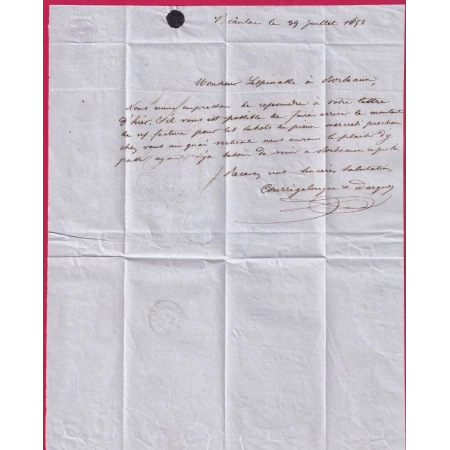 le 29 Juillet 1853
Monsieur Lespinasse à Bordeaux,
Nous nous empressons de répondre à votre lettre
d'hier, S'il vous est possible de faire arriver le montant
de facture pour les prochain
chez vous au quai vertical nous aurons le plaisir d'y
passer ayant besoin de venir à Bordeaux
Recevez nos sincères salutations
Courrégelongue & Dargues